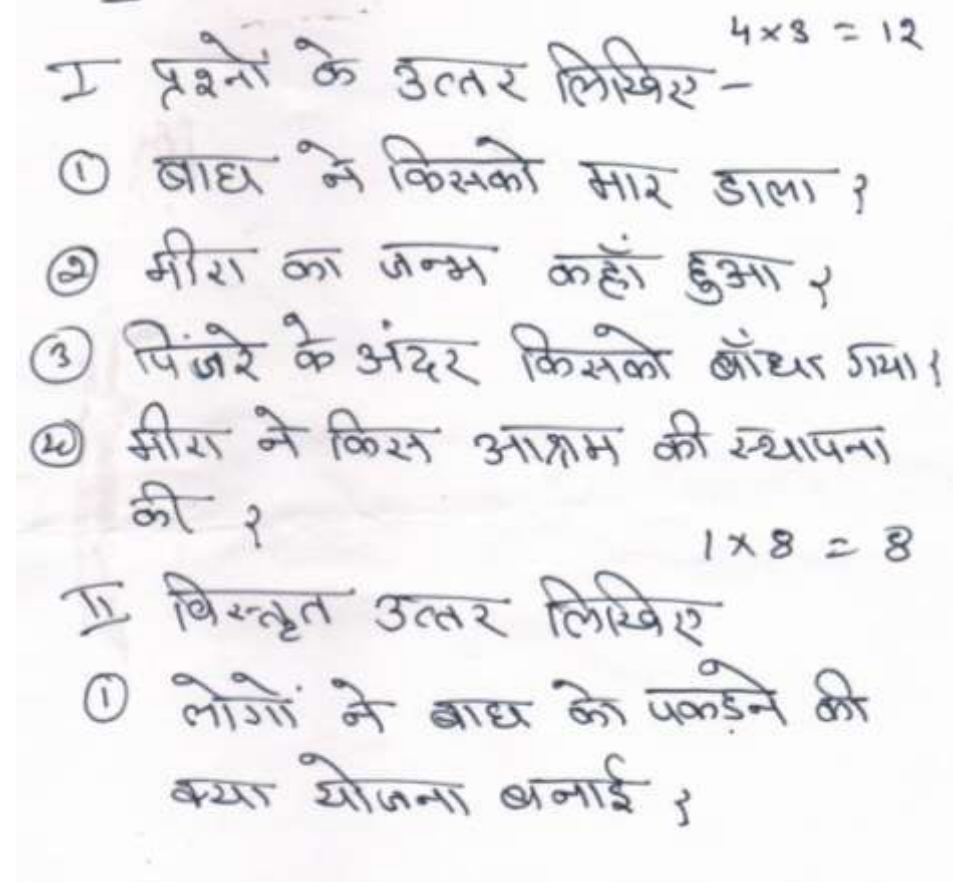 4 x 3 = 12
I प्रश्नों के उत्तर लिखिए -
① बाघ ने किसको मार डाला ?
② मीरा का जन्म कहाँ हुआ ?
③ पिंजरे के अंदर किसको बाँधा गया ?
④ मीरा ने किस आश्रम की स्थापना
की ?
1 x 8 = 8
II विस्तृत उत्तर लिखिए
① लोगों ने बाघ को पकड़ने की
क्या योजना बनाई ?